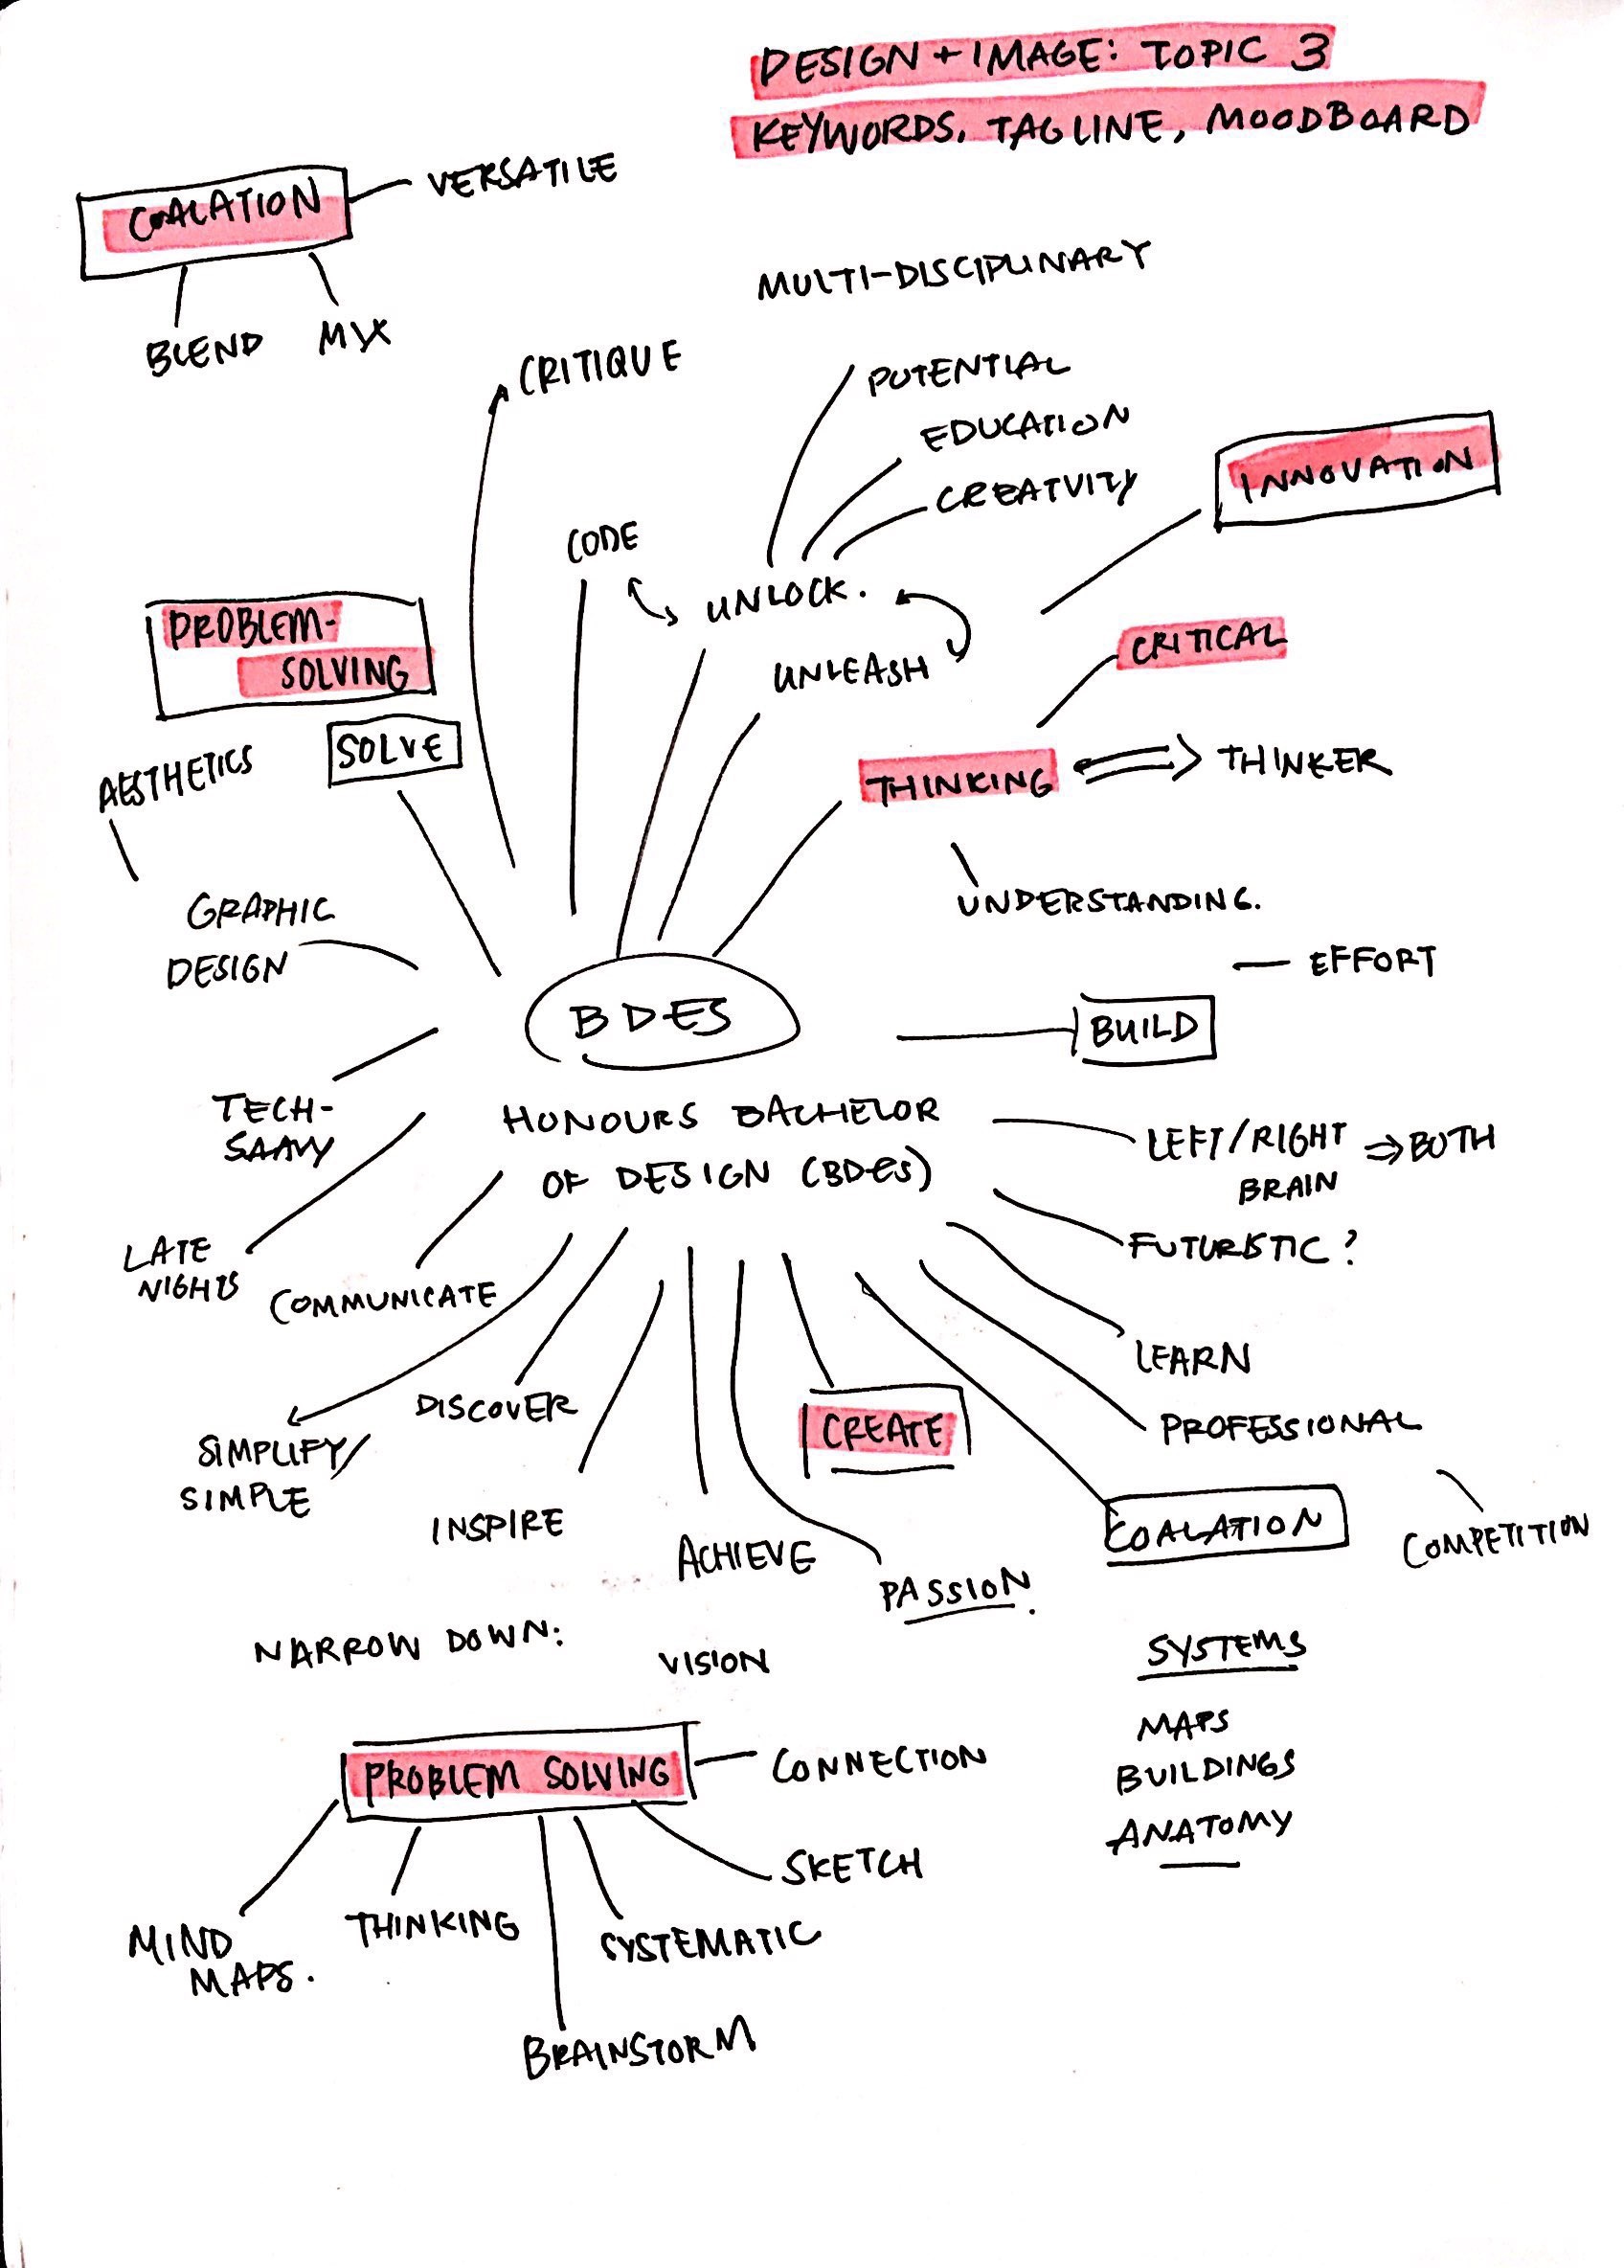 DESIGN + IMAGE: TOPIC 3
KEYWORDS, TAGLINE, MOODBOARD
COALATION
VERSATILE
BLEND
MIX
MULTI-DISCIPLINARY
CRITIQUE
POTENTIAL
EDUCATION
CREATVITY
INNOVATION
CODE
UNLOCK.
UNLEASH
PROBLEM-
SOLVING
SOLVE
AESTHETICS
CRITICAL
THINKING
THINKER
UNDERSTANDING.
GRAPHIC
DESIGN
EFFORT
BDES
BUILD
TECH-
SAAVY
HONOURS BACHELOR
OF DESIGN (BDes)
LEFT/RIGHT ⇒ BOTH
BRAIN
FUTURISTIC?
LATE
NIGHTS
COMMUNICATE
LEARN
DISCOVER
SIMPLIFY/
SIMPLE
CREATE
PROFESSIONAL
INSPIRE
ACHIEVE
PASSION.
COALATION
COMPETITION
NARROW DOWN:
VISION
SYSTEMS
MAPS
BUILDINGS
ANATOMY
PROBLEM SOLVING
CONNECTION
SKETCH
SYSTEMATIC
THINKING
MIND
MAPS.
BRAINSTORM